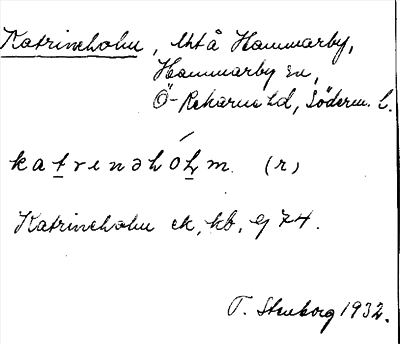 Katrineholm, Uht å Hammarby,
Hammarby sn,
Ö-Rekarne hd, Söderm. l.
katrenəhólm. (r)
Katrineholm ek, kb, 9j 74.
T. Stenborg 1932.